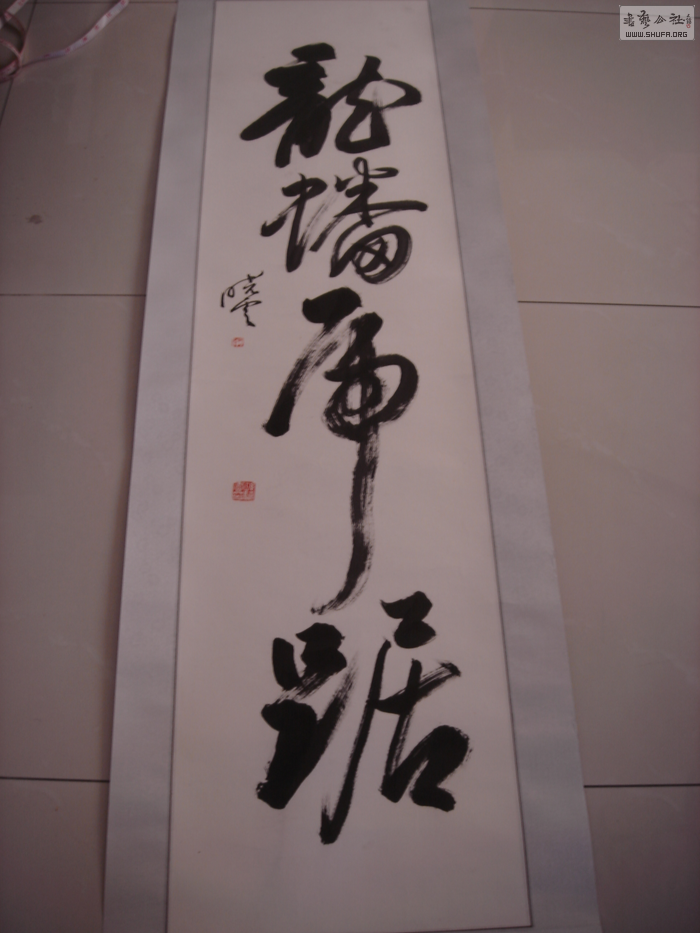 龍蟠虎踞
晓云
书艺公社
WWW.SHUFA.ORG